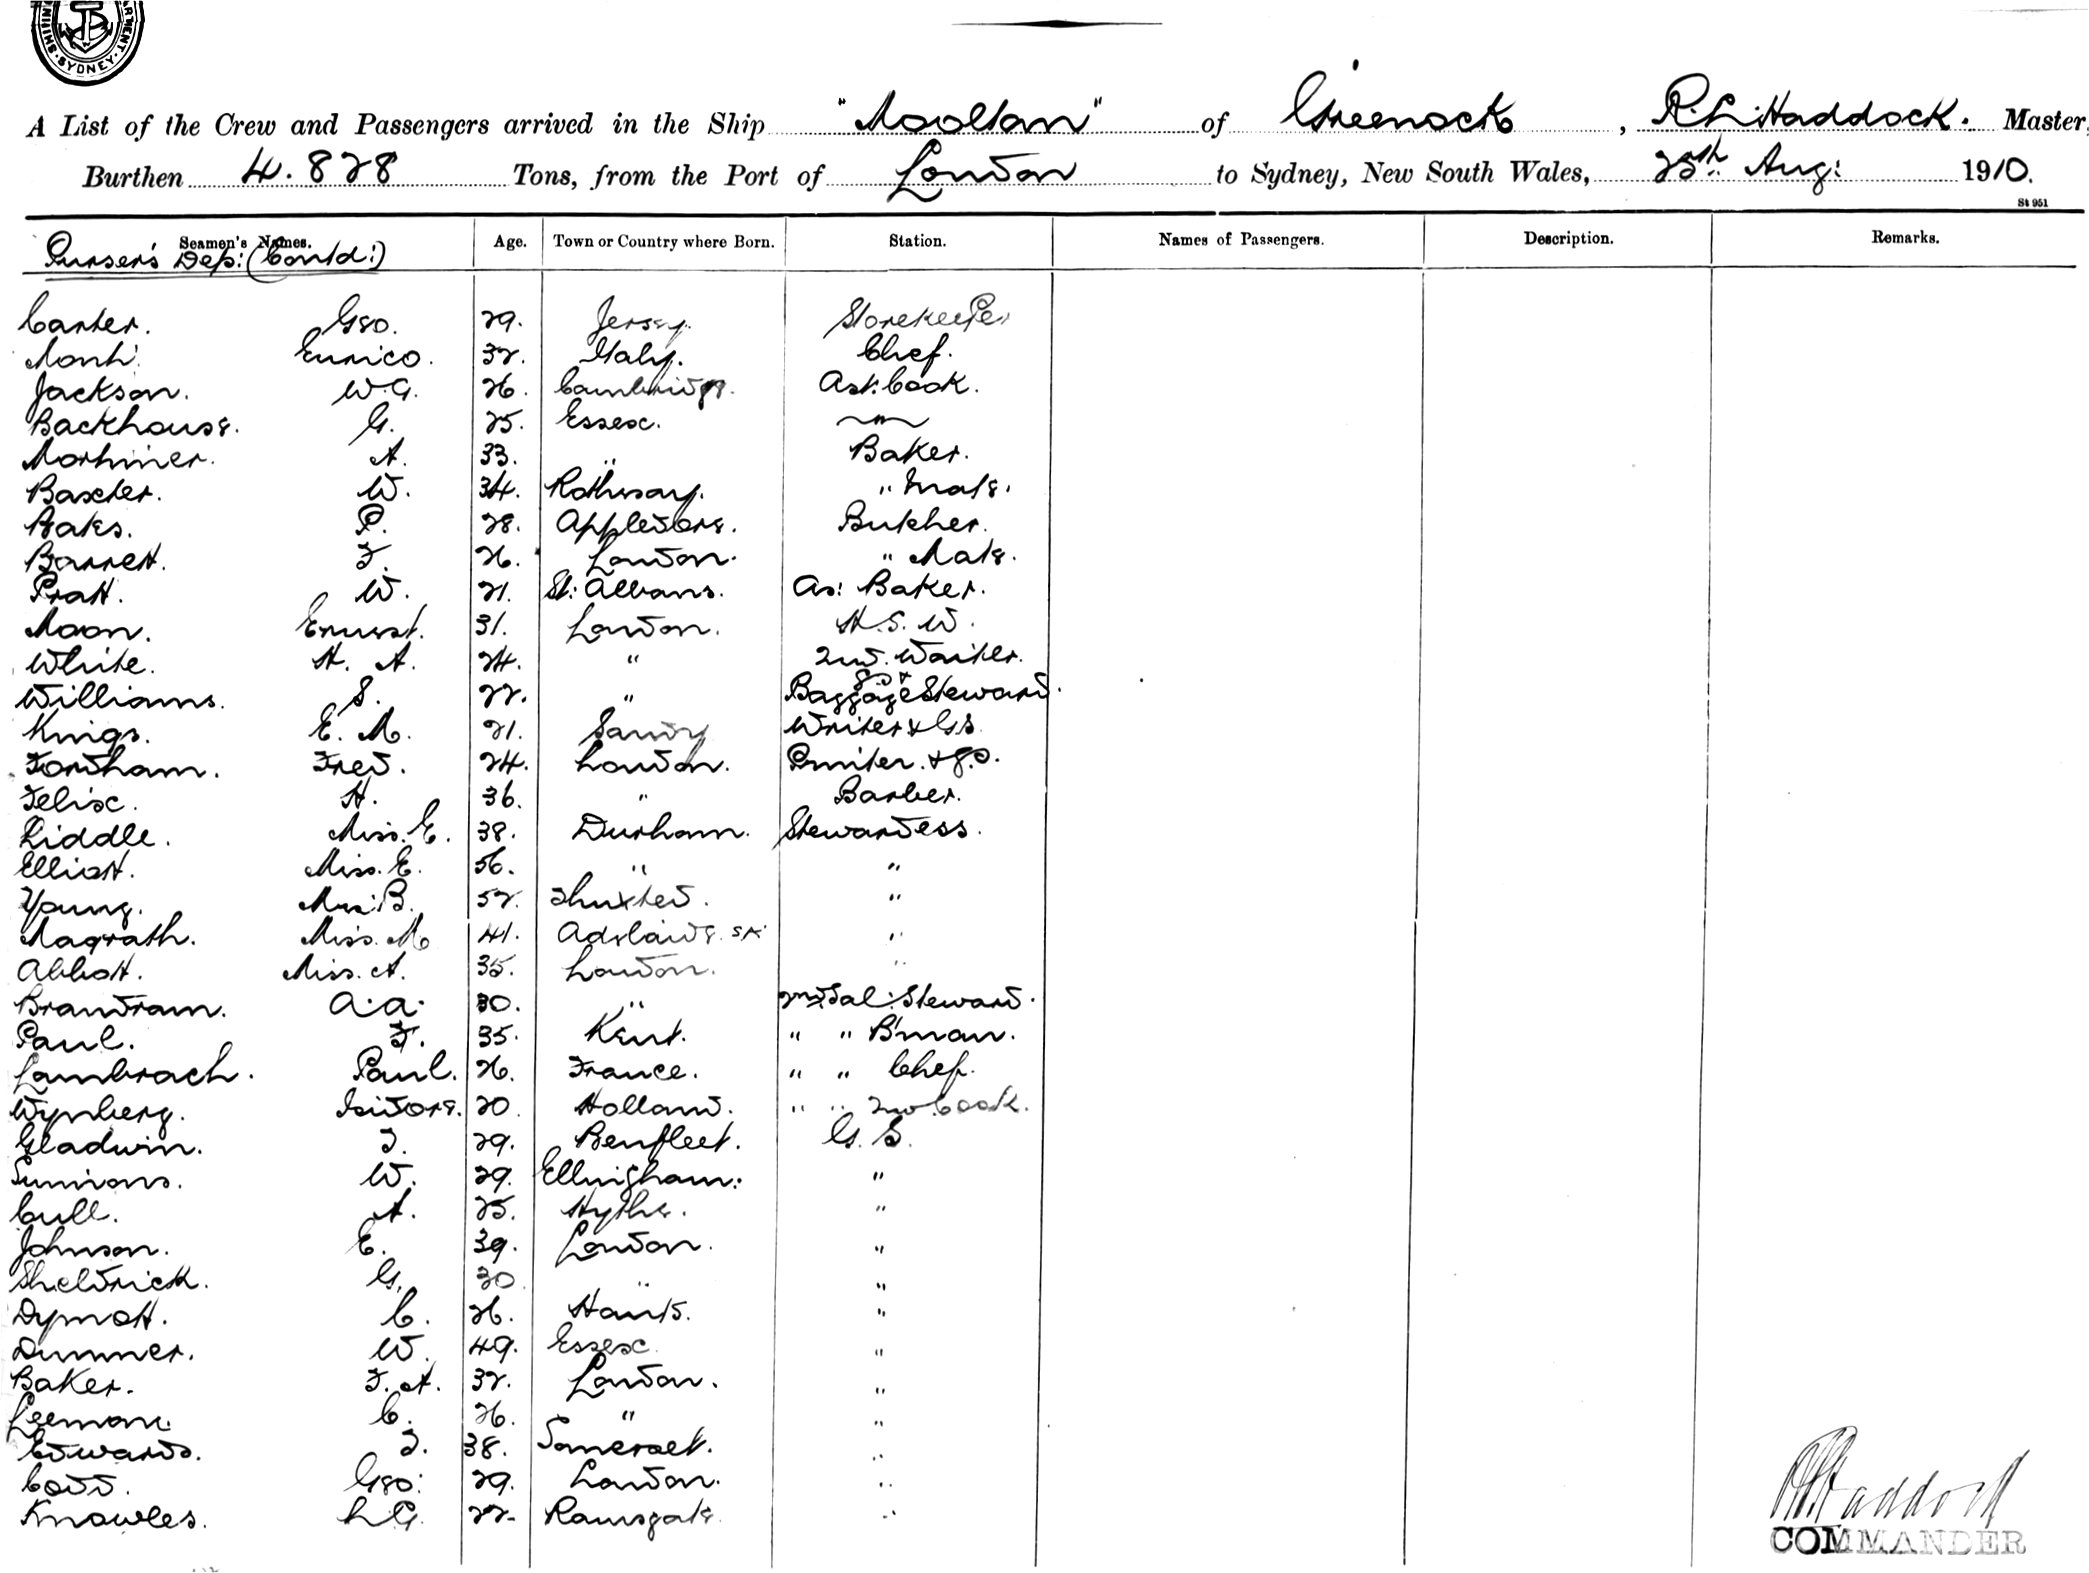 SYDNEY
A List of the Crew and Passengers arrived in the Ship "Mooltan" of Greenock, R. L. Haddock. Master,
Burthen 4.828 Tons, from the Port of London to Sydney, New South Wales, 25th Aug: 1910.
St 951
Seamen's Names. Age. Town or Country where Born. Station. Names of Passengers. Description. Remarks.
Purser's Dep: (Contd:)
Carter. Geo. 29. Jersey. Storekeeper
Monti. Enrico. 32. Italy. Chef.
Jackson. W.G. 26. Cambridge. Ast. Cook.
Backhouse. G. 25. Essex. "
Mortimer. A. 33. " Baker.
Baxter. W. 34. Rothesay. " Mate.
Oaks. P. 28. Appledore. Butcher.
Barrett. F. 26. London. " Mate.
Pratt. W. 21. St: Albans. As: Baker.
Moon. Ernest. 31. London. H.S.W.
White. H. A. 24. " 2nd. Waiter.
Williams. S. 22. " Baggage Steward. GS &
Kings. E. M. 21. Sandy Writer & GS.
Fordham. Fred. 24. London. Printer. & GS.
Felix. H. 36. " Barber.
Liddle. Miss. E. 38. Durham. Stewardess.
Elliott. Miss. E. 56. " "
Young. Mrs: B. 52. "
Magrath. Miss. M 41. Adelaide. SA "
Abbott. Miss. A. 35. London. "
Brandram. A.A. 30. " 2nd Sal: Steward.
Paul. F. 35. Kent. " " B'man.
Lambrach. Paul. 26. France. " " Chef.
Wynberg. Isidore. 20. Holland. " " 2nd Cook.
Gladwin. J. 29. Benfleet. G. S.
Simmons. W. 29. Ellingham: "
Cull. A. 25. Hythe. "
Johnson. E. 39. London. "
Sheldrick. G. 30 " "
Dymott. C. 26. Hants. "
Dimmer. W. 49. Essex "
Baker. F. A. 32. London. "
Leeman. C. 26. " "
Edwards. J. 38. Somerset. "
Codd. Geo: 29. London. "
Knowles. L G. 22. Ramsgate. "
R L Haddock
COMMANDER